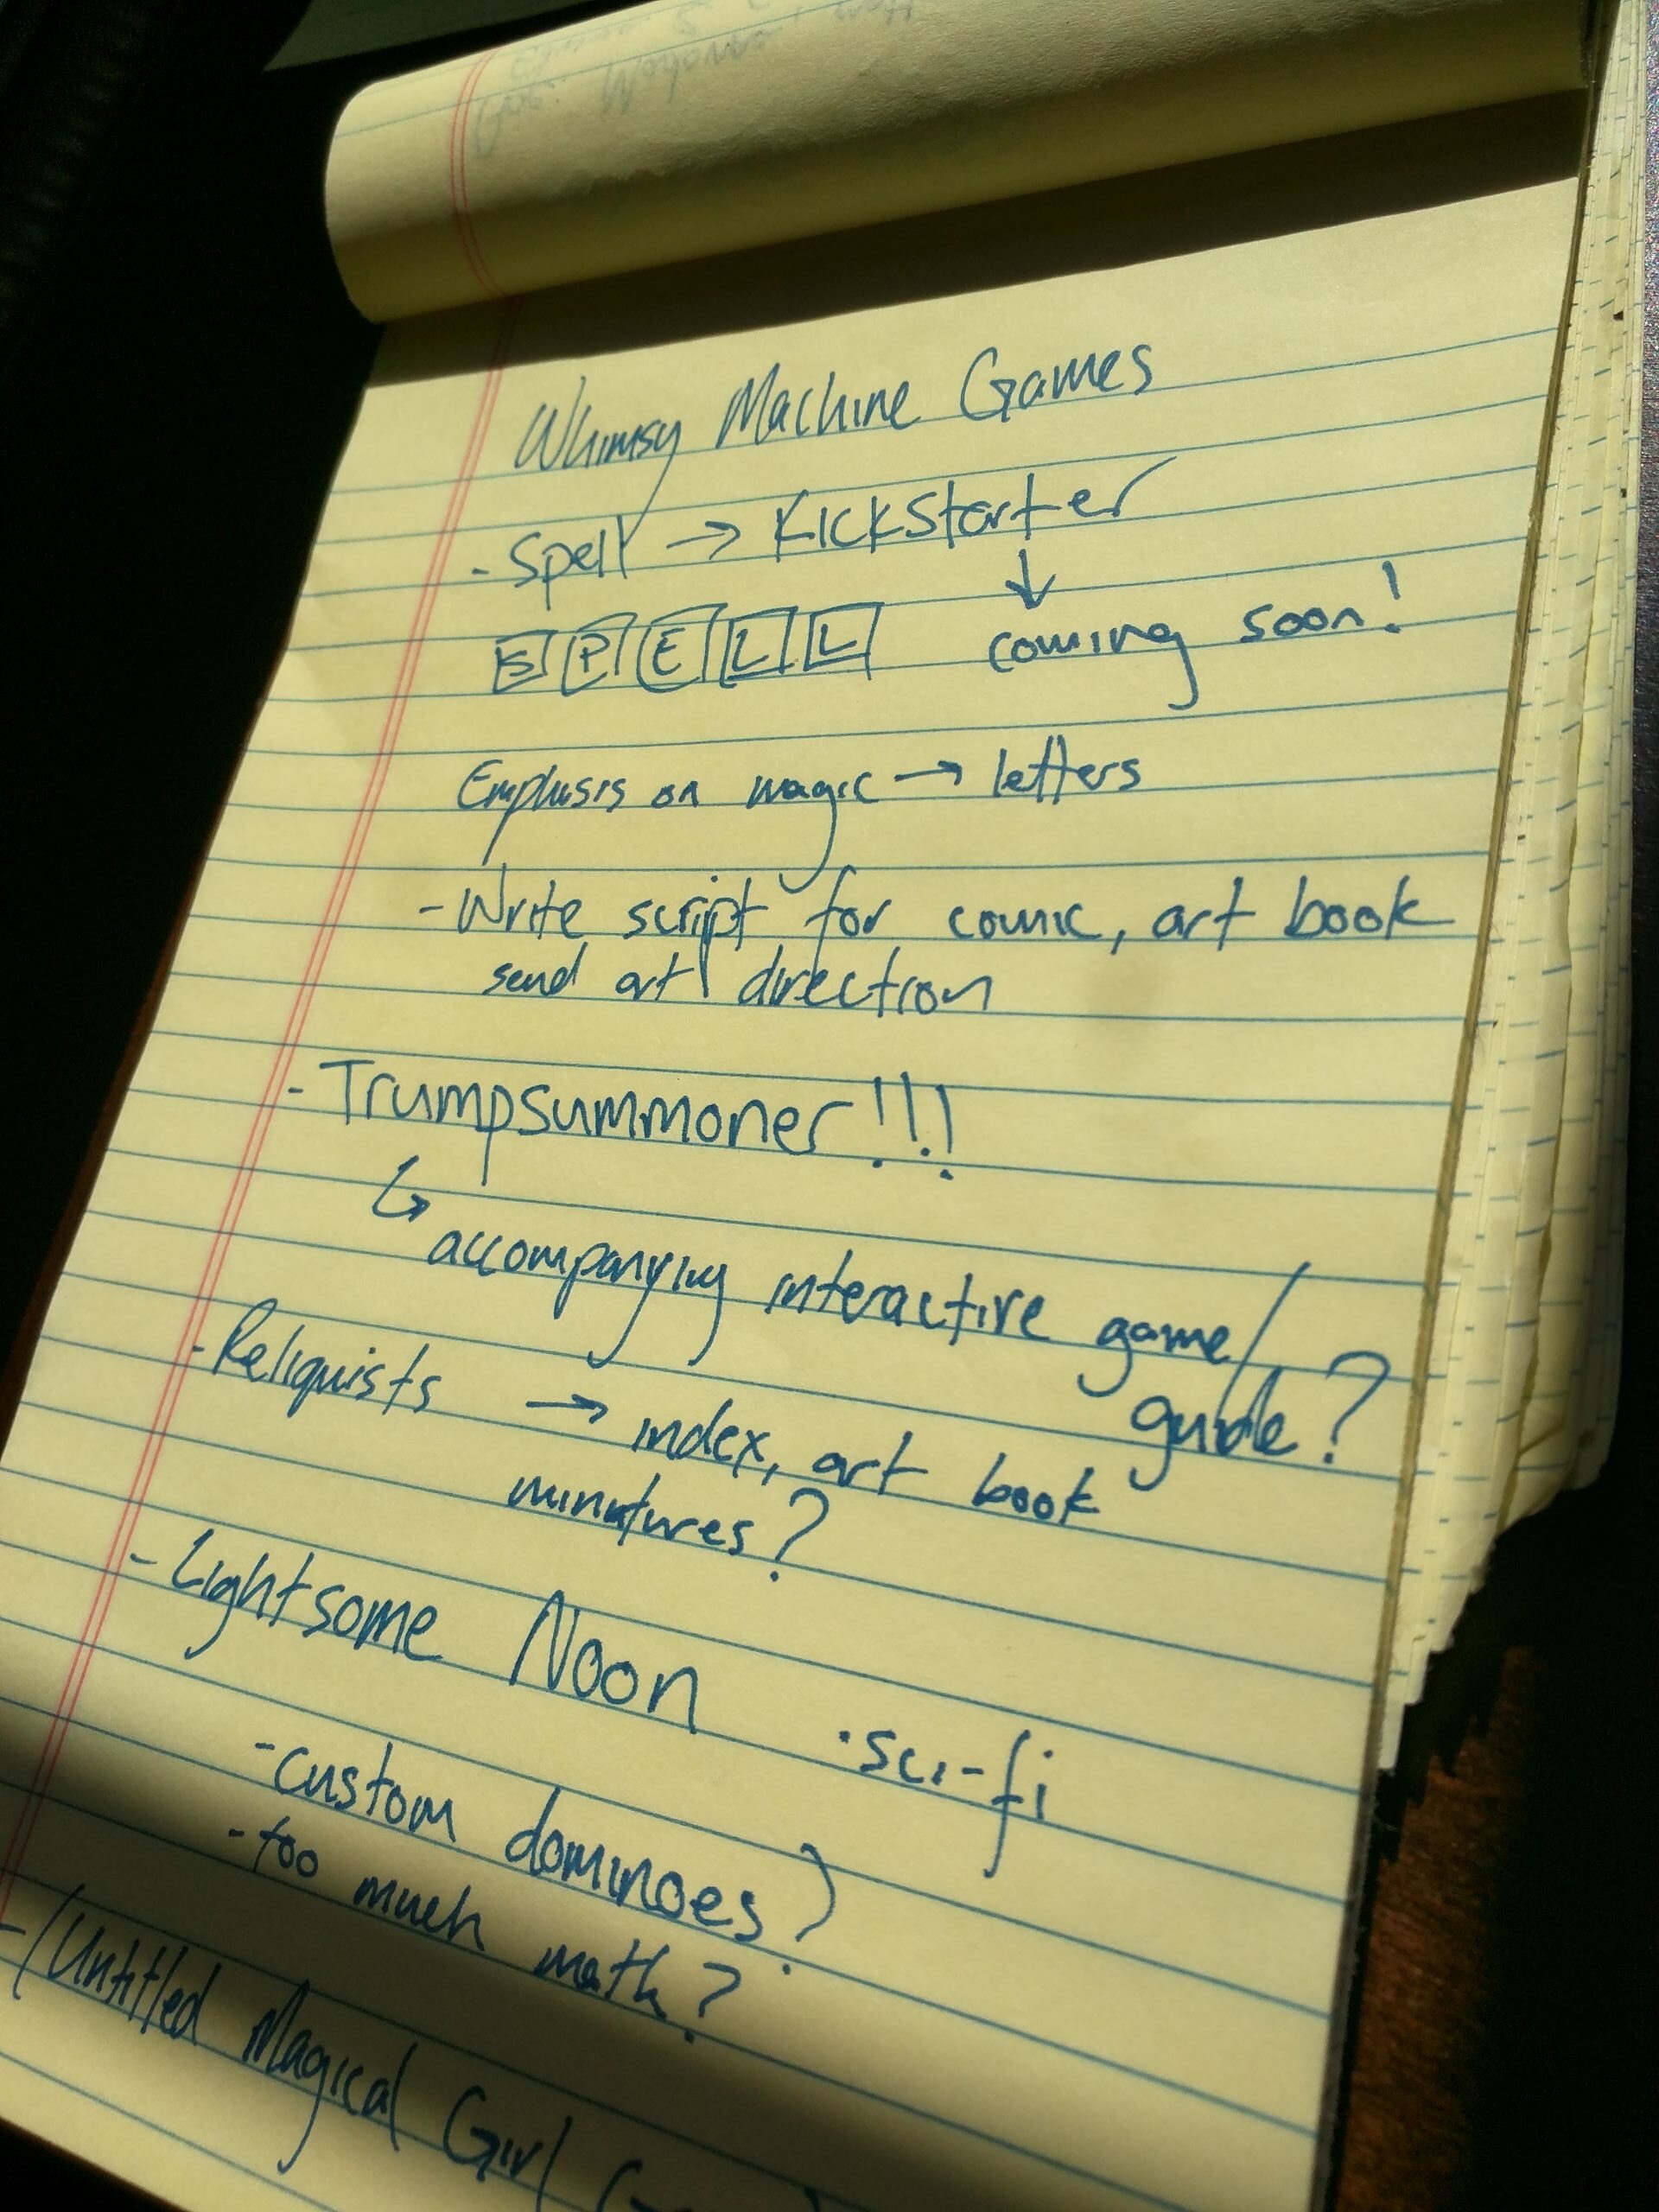 Whimsy Machine Games
- Spell → Kickstarter
↓
SPELL coming soon!
Emphasis on magic → letters
- Write script for comic, art book
send art direction
- Trumpsummoner!!!
↳ accompanying interactive game/
guide?
- Reliquists → index, art book
minatures?
- Lightsome Noon · sci-fi
- custom dominoes?
- too much math?
- (Untitled Magical Girl